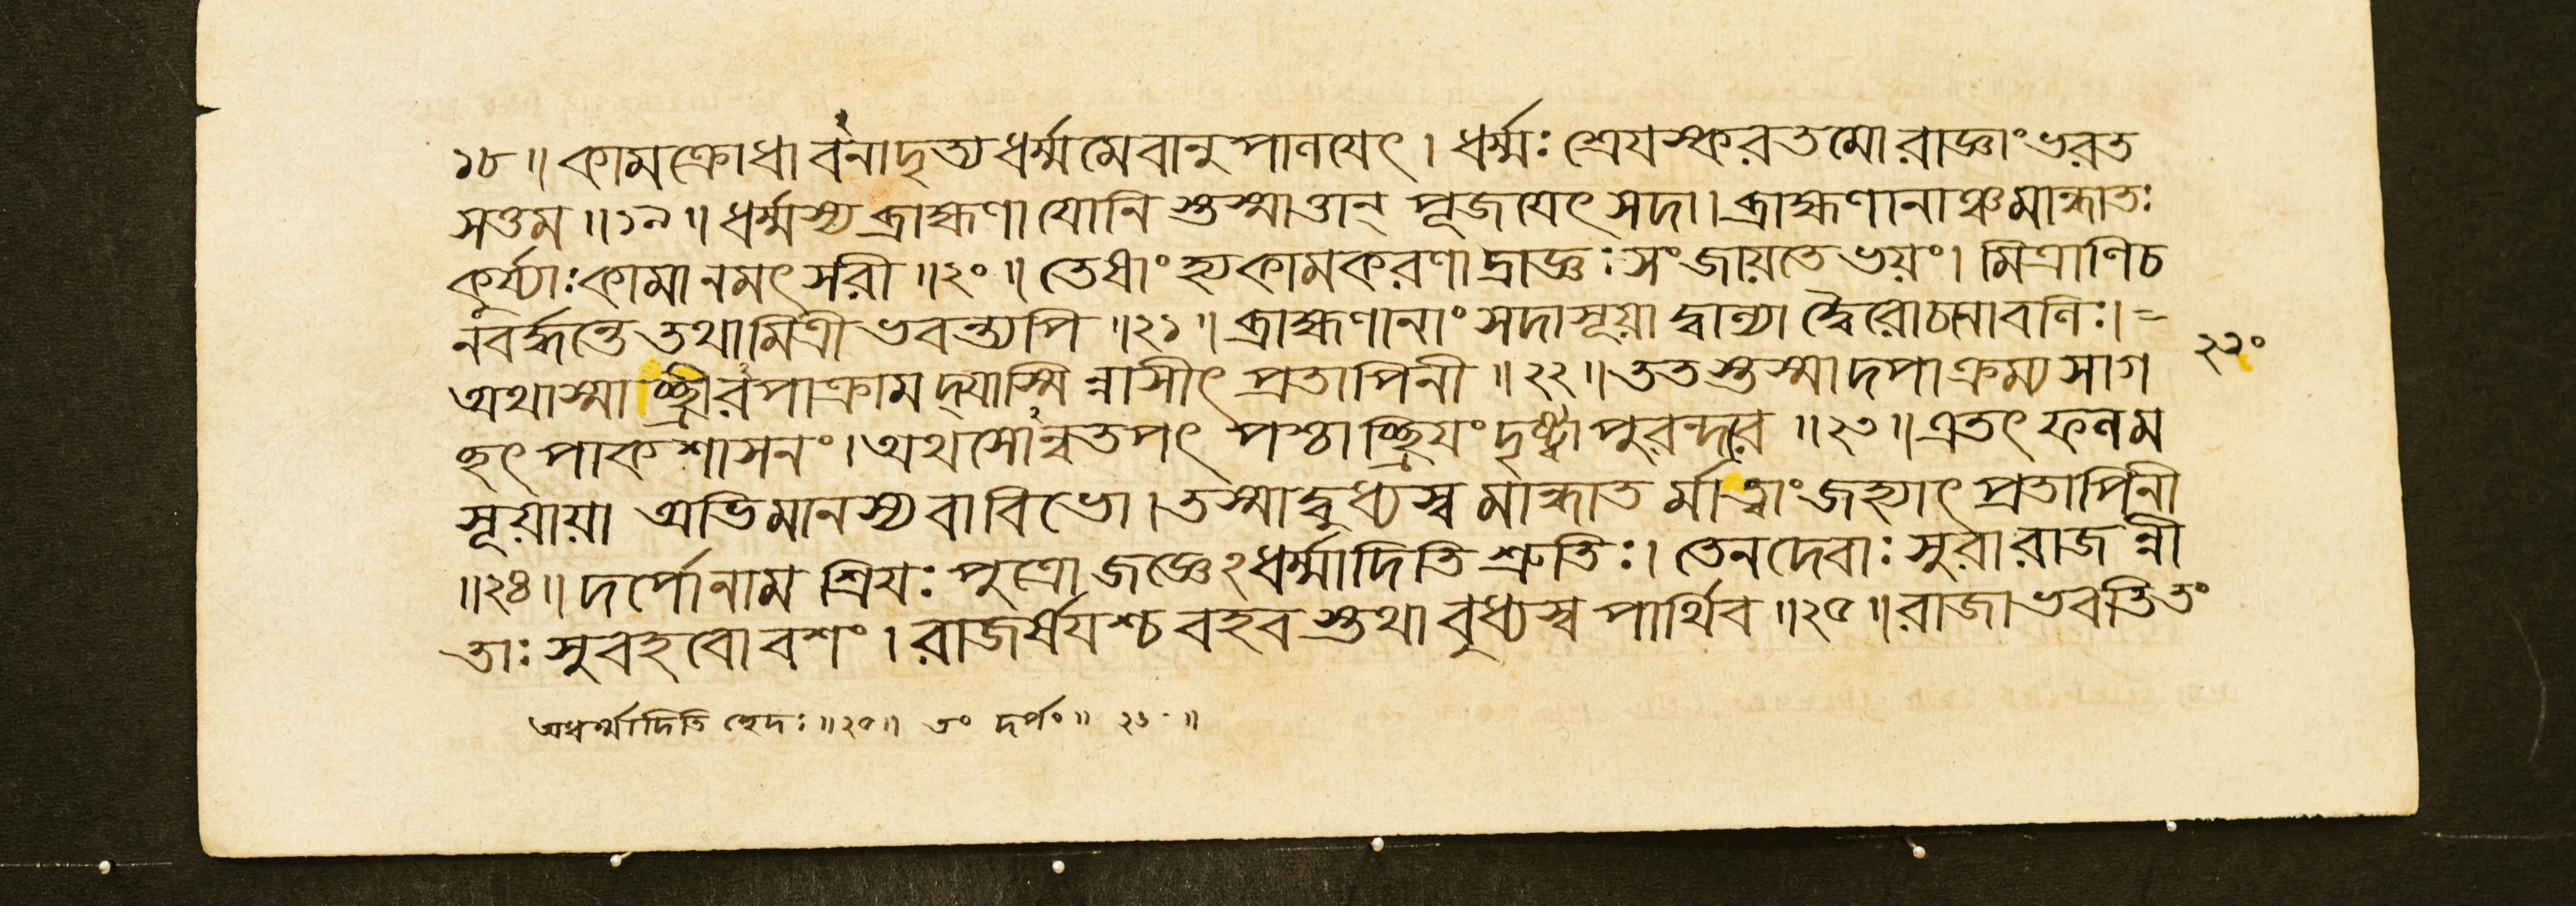 ১৮ ॥ কামক্রোধাবনাদৃত্য ধর্ম্মমেবানুপালয়েৎ । ধর্ম্মঃ শ্রেয়স্করতমো রাজ্ঞাং ভরত
সত্তম ॥ ১৯ ॥ ধর্ম্মস্য ব্রাহ্মণা যোনি স্তস্মাত্তান্ পূজয়েৎ সদা । ব্রাহ্মণানাঞ্চ মান্ধাতঃ
কুর্য্যাঃ কামানমৎসরী ॥ ২০ ॥ তেষাং হ্যকামকরণাদ্রাজ্ঞঃ সংজায়তে ভয়ং । মিত্রাণি চ
ন বর্দ্ধন্তে তথামিত্রীভবন্ত্যপি ॥ ২১ ॥ ব্রাহ্মণানাং সদাসূয়া দ্বাল্যা দ্বৈরোচনাবলিঃ । =
অথাস্মাচ্ছ্রীরপাক্রামদ্যাস্মিন্নাসীৎ প্রতাপিনী ॥ ২২ ॥ ততস্তস্মাদপাক্রম্য সাগ
২২০
চ্ছৎ পাকশাসনং । অথ সোন্বতপৎ পশ্চাচ্ছ্রিয়ং দৃষ্ট্বা পুরন্দরে ॥ ২৩ ॥ এতৎ ফলম
সূয়ায়া অভিমানস্য বা বিভো । তস্মাদ্বুধ্যস্ব মান্ধাত র্মাত্বাং জহ্যাৎ প্রতাপিনী
॥ ২৪ ॥ দর্পো নাম শ্রিয়ঃ পুত্রো জজ্ঞেঽধর্ম্মাদিতি শ্রুতিঃ । তেন দেবাঃ সুরা রাজন্নী
তাঃ সুবহবো বশং । রাজর্ষয়শ্চ বহব স্তথা বুধ্যস্ব পার্থিব ॥ ২৫ ॥ রাজা ভবতি তং
অধর্ম্মাদিতি ছেদঃ ॥ ২৫ ॥ তং দর্পং ॥ ২৬ ॥